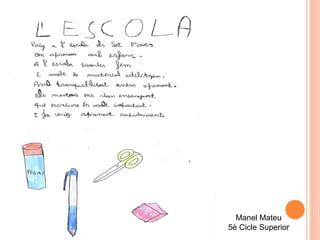 L'ESCOLA
Vaig a l'escola els Set Focs
On aprenem amb esforç.
A l'escola tractes fem
I molt de material utilitzem.
Amb tranquil·litat anem aprenent.
Els mestres ens van ensenyant
que escriure és molt important.
I fa vaig aprenent
Manel Mateu
5è Cicle Superior